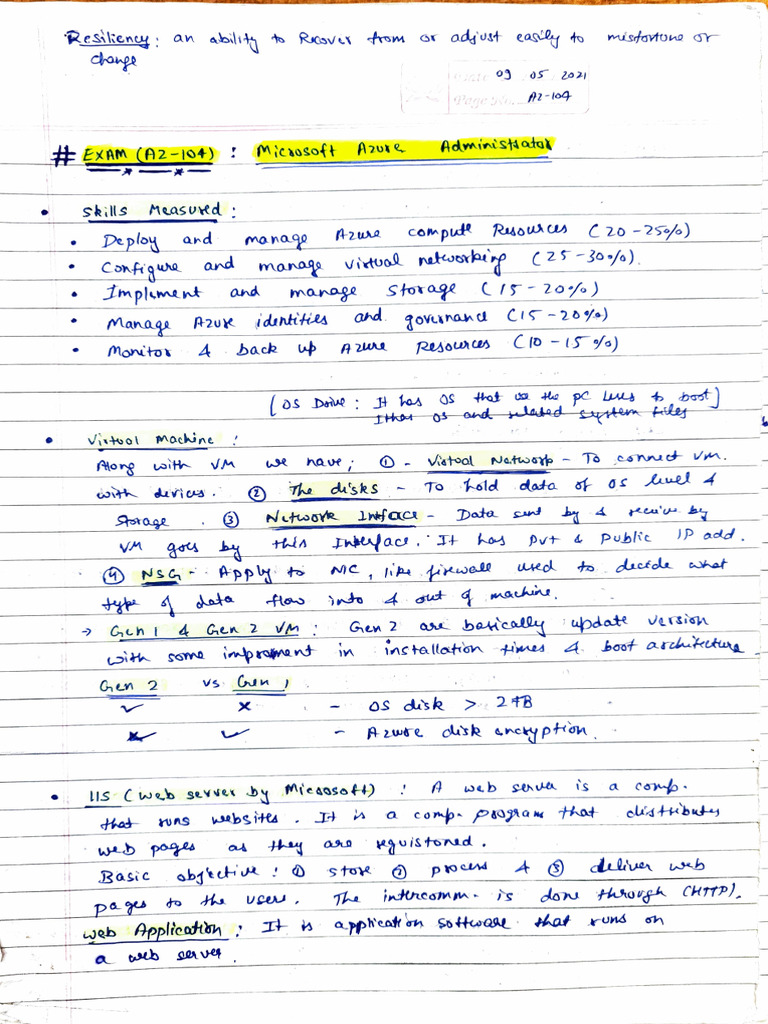 Resiliency: an ability to Recover from or adjust easily to misfortune or
change
Date 09 05 2021
Page No. AZ-104
# EXAM (AZ-104) : Microsoft Azure Administrator
• Skills Measured :
• Deploy and manage Azure compute Resources (20-25%)
• Configure and manage virtual networking (25-30%).
• Implement and manage storage (15-20%)
• Manage Azure identities and governance (15-20%)
• Monitor & back up Azure Resources (10-15%)
[OS Drive : It has OS that use the PC uses to boot]
It has OS and related system files
• Virtual Machine :
Along with VM we have; ① - Virtual Network - To connect VM.
with devices. ② The disks - To hold data of OS level &
storage. ③ Network Intface - Data sent by & receive by
VM goes by this Interface. It has pvt & public IP add.
④ NSG - Apply to NIC, like firewall used to decide what
type of data flow into & out of machine.
→ Gen 1 & Gen 2 VM : Gen 2 are basically update version
with some improment in installation times & boot architecture
Gen 2 vs Gen 1
✓ × - OS disk > 2TB
× ✓ - Azure disk encryption.
• IIS (Web server by Microsoft) : A web server is a comp.
that runs websites. It is a comp. program that distributes
web pages as they are requistoned.
Basic objective : ① store ② process & ③ deliver web
pages to the users. The intercomm. is done through (HTTP).
Web Application : It is application software that runs on
a web server.